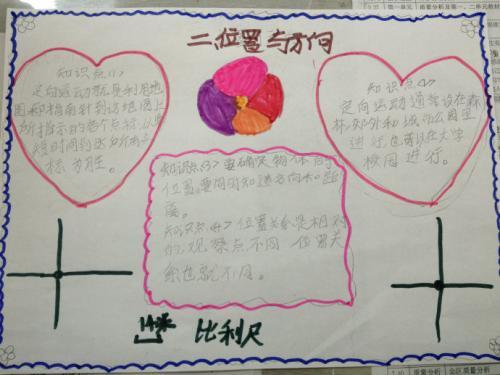 二、位置与方向
知识点(1)
定向运动就是利用地
图和指南针到访地图上
所指示的各个点标,以最
短时间到达所有点
标为胜。
知识点(2)
定向运动通常设在森
林、郊外和城市公园里
进行,也可以在大学
校园进行。
知识点(3)要确定物体的
位置,要同时知道方向和距
离。
知识点(4)位置关系是相对
的,观察点不同 位置关
系也就不同。
14米
比利尺